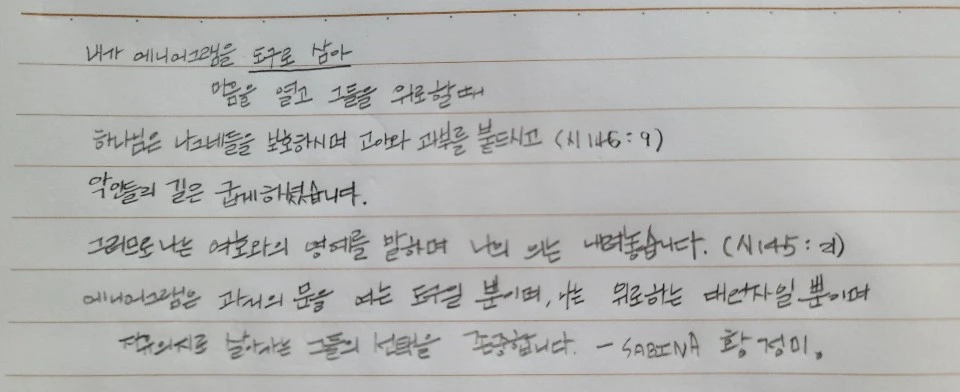 내가 에니어그램을 도구로 삼아
마음을 열고 그들을 위로할때
하나님은 나그네들을 보호하시며 고아와 과부를 붙드시고 (시146:9)
악인들의 길은 굽게하셨습니다.
그러므로 나는 여호와의 명예를 말하며 나의 의는 내려놓습니다. (시145:21)
에니어그램은 과거의 문을 여는 도구일 뿐이며, 나는 위로하는 대언자일 뿐이며
자유의지로 날아가는 그들의 선택을 존중합니다. - SABINA 황정미.